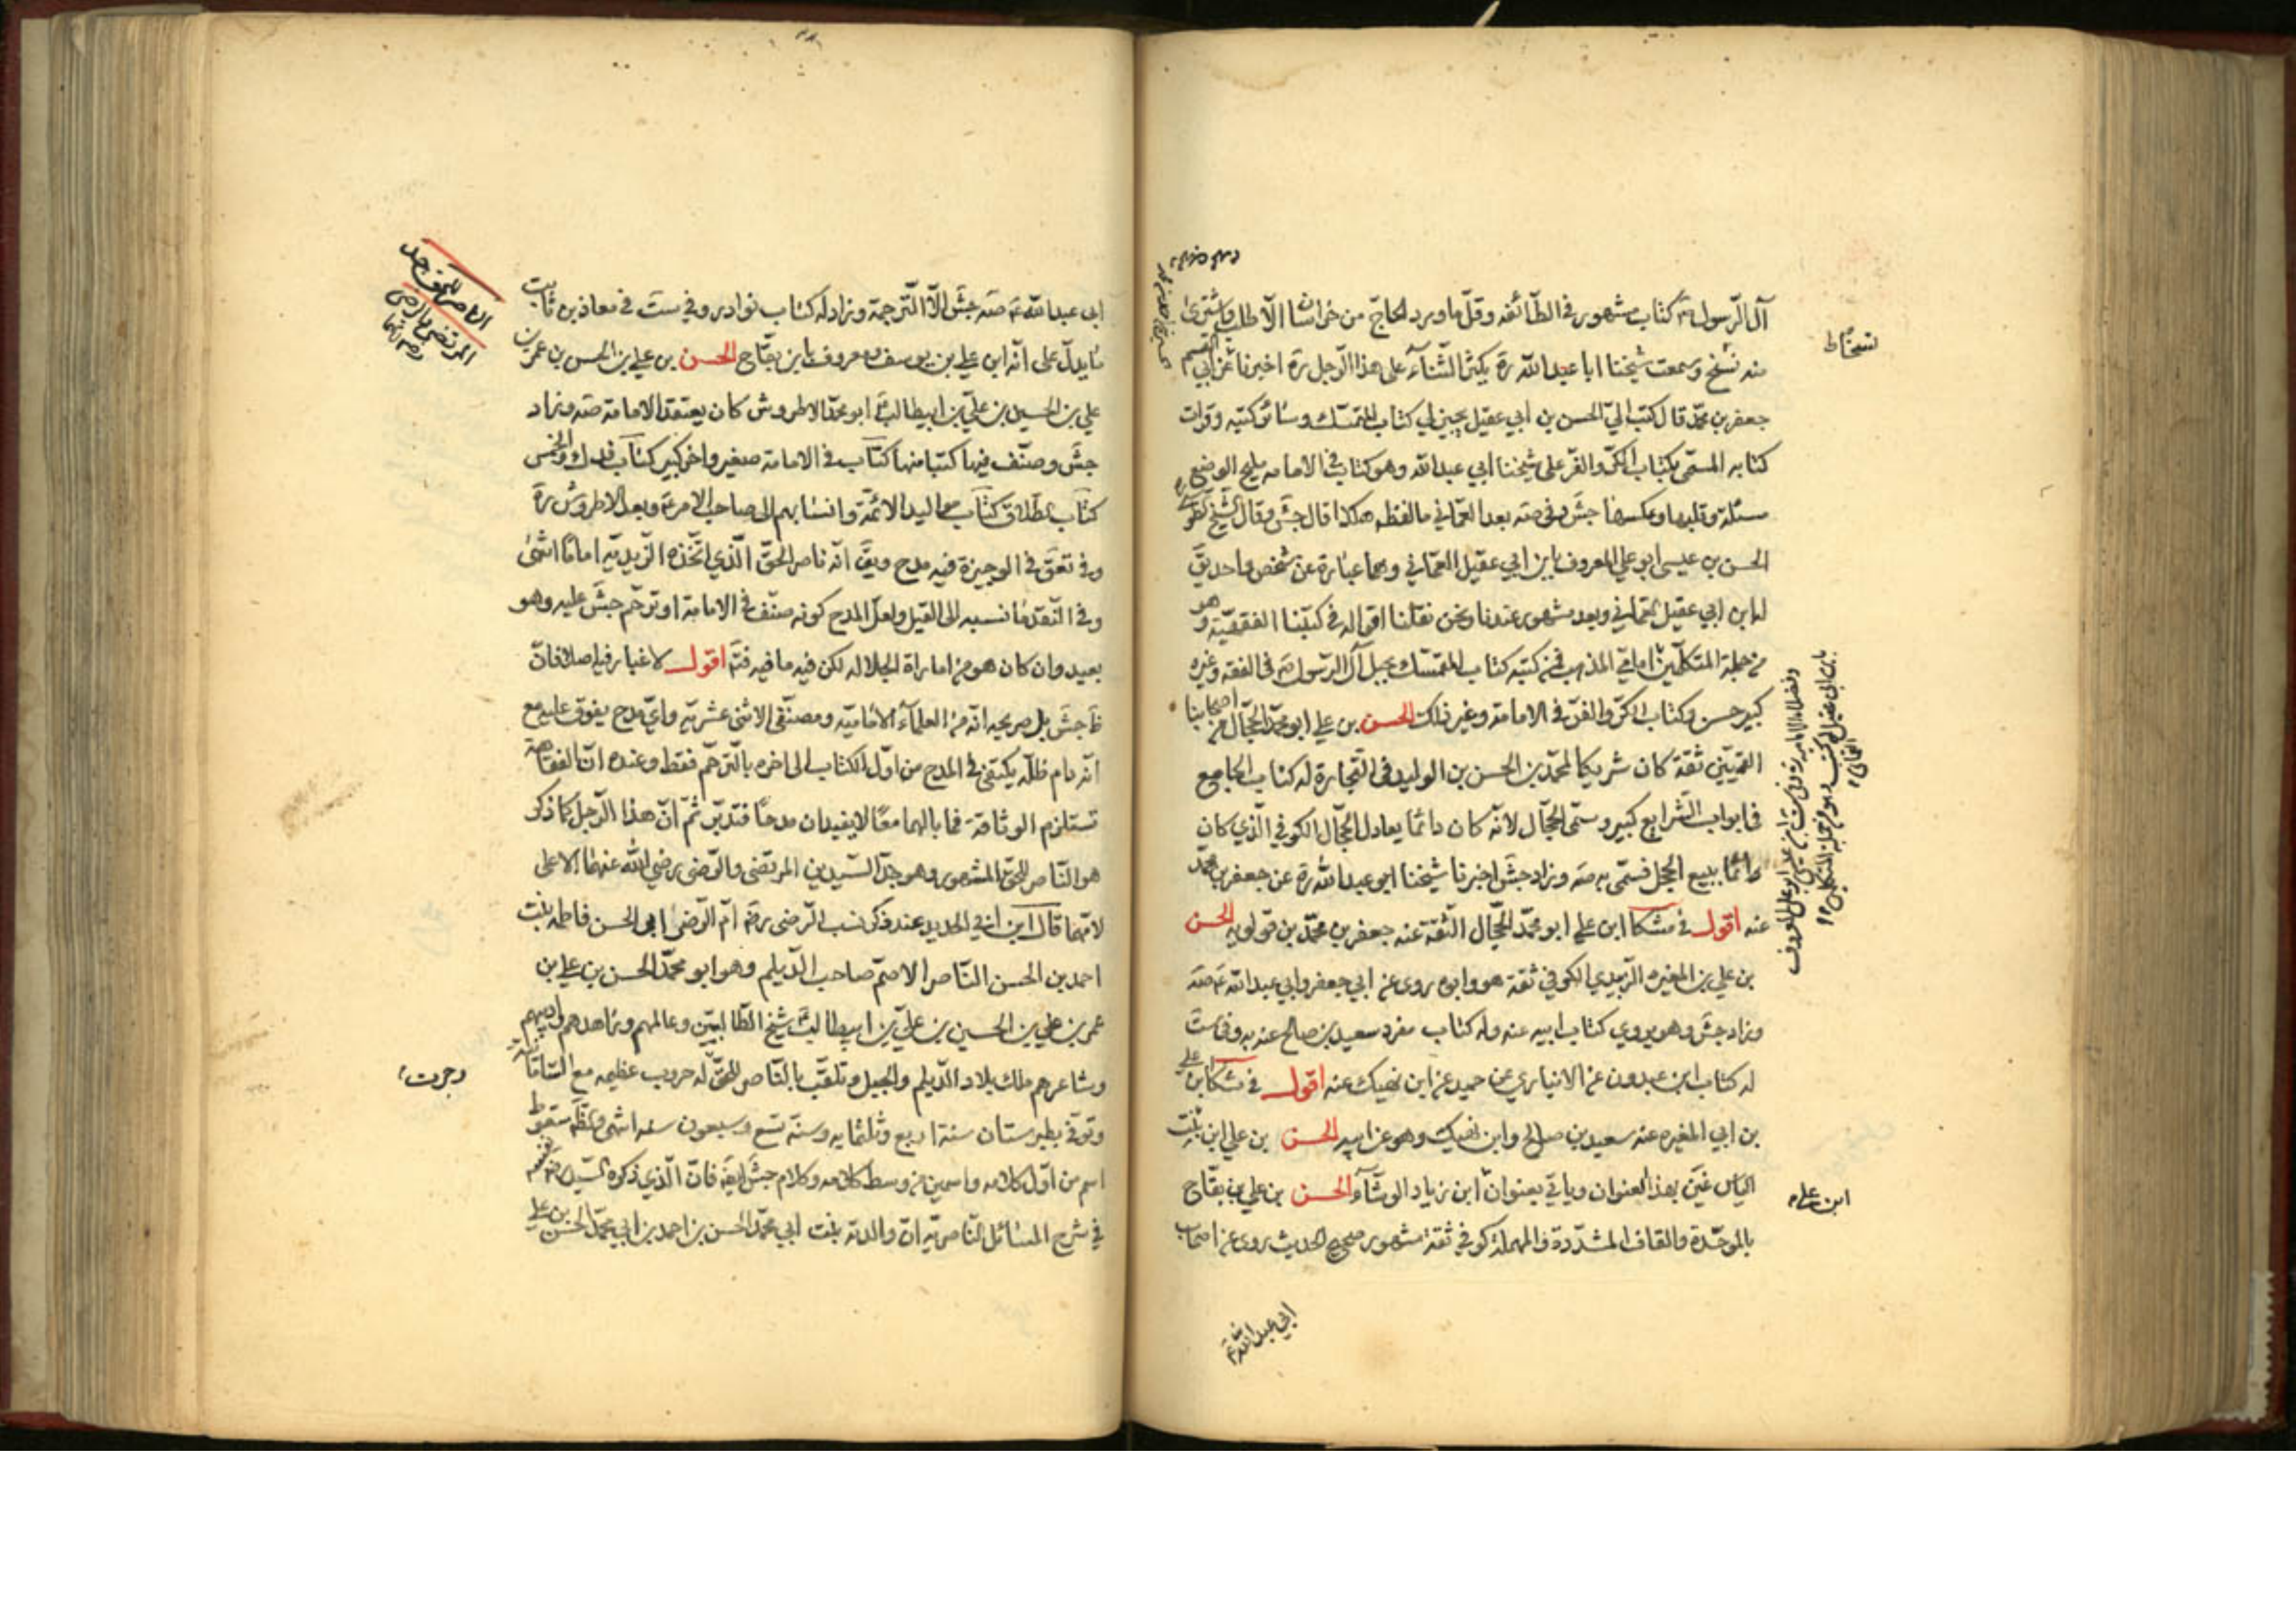 آل الرسول كتاب مشهور في الطائفة وقل ما ورد الحاج من خراسان الا طلب واشترى
منه نسخ وسمعت شيخنا ابا عبد الله ره يكثر الثناء على هذا الرجل ره اخبرنا عن ابي القسم
جعفر بن محمد قال كتب الي الحسن بن ابي عقيل يجيز لي كتاب المتمسك وسائر كتبه وقرات
كتابه المسمى بكتاب الكر والفر على شيخنا ابي عبد الله وهو كتاب في الامامة مليح الوضع
مسئلة وقلبها وعكسها جش وفي صه بعد العماني ما لفظه هكذا قال جش وقال الشيخ
الحسن بن عيسى ابو علي المعروف بابن ابي عقيل العماني وهما عبارة عن شخص واحد يق
له ابن ابي عقيل العماني وبعد مشهور عندنا ونحن نقلنا اقواله في كتبنا الفقهية وهو
من جملة المتكلمين امامي المذهب فمن كتبه كتاب المتمسك بحبل آل الرسول في الفقه وغيره
كبير حسن وكتاب الكر والفر في الامامة وغير ذلك الحسن بن علي ابو محمد الحجال من اصحابنا
القميين ثقة كان شريكا لمحمد بن الحسن بن الوليد في التجارة له كتاب الجامع
في ابواب الشرايع كبير وسمى الحجال لانه كان دائما يعادل الحجال الكوفي الذي كان
دائما يبيع الحجل فسمى به صه وزاد جش اخبرنا شيخنا ابو عبد الله ره عن جعفر بن محمد
عنه اقول في مشكا ابن علي ابو محمد الحجال الثقة عنه جعفر بن محمد بن قولويه الحسن
بن علي بن المغيرة الزبيدي الكوفي ثقة هو وابوه روى عن ابي جعفر وابي عبد الله ع صه
وزاد جش وهو يروي كتاب ابيه عنه وله كتاب مفرد سعيد بن صالح عنه به وفي ست
له كتاب ابن عبدون عن الانباري عن حميد عن ابن نهيك عنه اقول في مشكا ابن علي
بن ابي المغيرة عنه سعيد بن صالح وابن نهيك وهو عن ابيه الحسن بن علي ابن بنت
الياس غير بهذا العنوان وياتي بعنوان ابن زياد الوشاء الحسن بن علي بن بقاح
بالموحدة والقاف المشددة والمهملة كوفي ثقة مشهور صحيح الحديث روى عن اصحاب
ابي عبد الله ع
نسخا ط
ابن علي
ابي عبد الله ع صه جش الا الترجمة وزاد له كتاب نوادر وفي ست في معاذ بن ثابت
ما يدل على انه ابن علي بن يوسف ومعروف بابن بقاح الحسن بن علي بن الحسن بن عمر بن
علي بن الحسين بن علي بن ابيطالب ع ابو محمد الاطروش كان يعتقد الامامة صه وزاد
جش وصنف فيها كتبا منها كتاب في الامامة صغير واخر كبير كتاب فدك والخمس
كتاب الطلاق كتاب مواليد الائمة وانسابهم الى صاحب الامر ع وبعد الاطروش ره
وفي تعق في الوجيزة فيه مدح ويق انه ناصر الحق الذي اتخذه الزيدية اماما انتهى
وفي النقد ما نسبه الى القيل ولعل المدح كونه صنف في الامامة او ترحم جش عليه وهو
بعيد وان كان هو من امارة الجلالة لكن فيه ما فيه فتم اقول لا غبار فيه اصلا فان
ظ جش بل صريحه انه من العلماء الامامية ومصنفي الاثنى عشرية واي مدح يفوق عليه مع
انه دام ظله يكتفي في المدح من اول الكتاب الى اخره بالترحم فقط وعنده ان الفقاهة
تستلزم الوثاقة فما بالهما معا لا يفيدان مدحا فتدبر ثم ان هذا الرجل كما ذكر
هو الناصر للحق المشهور وهو جد السيدين المرتضى والرضى رضي الله عنهما الاعلى
لامهما قال ابن ابي الحديد عند ذكر نسب الرضى ره ام الرضى ابي الحسن فاطمة بنت
احمد بن الحسن الناصر الاصم صاحب الديلم وهو ابو محمد الحسن بن علي بن
عمر بن علي بن الحسين بن علي بن ابيطالب ع شيخ الطالبيين وعالمهم وزاهدهم واديبهم
وشاعرهم ملك بلاد الديلم والجبل وتلقب بالناصر للحق له حروب عظيمة مع السامانية
وتوفي بطبرستان سنة اربع وثلثماية وسنه تسع وسبعون سنه انتهى وتظهر سقوط
اسم من اول كلامه واسمين من وسط كلامه وكلام جش ايضا فان الذي ذكره السيد نفسه
في شرح المسائل الناصرية ان والدته بنت ابي محمد الحسن بن احمد بن ابي محمد الحسن بن علي
الناصر للحق جد
المرتضى والرضى
رضي الله عنهما
وجرت